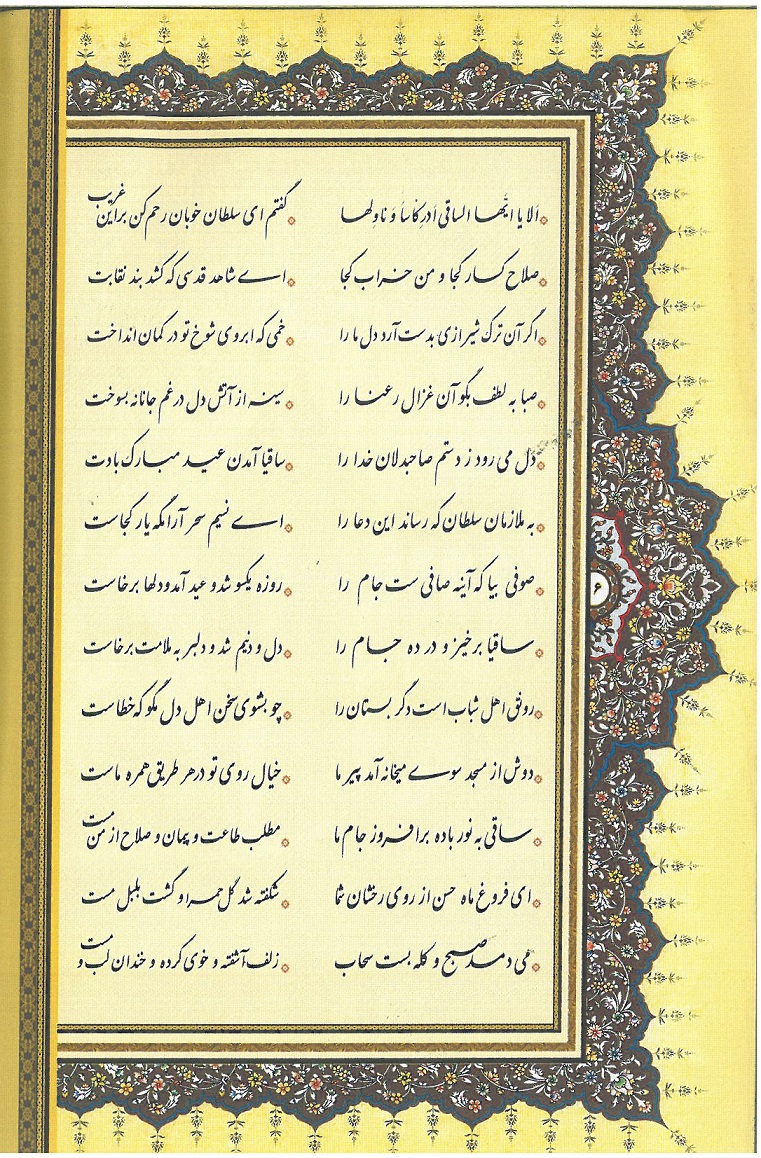 الا یا ایُّها الساقی اَدرِ کاَساً وَ ناوِلها
صلاح کار کجا و من خراب کجا
اگر آن ترک شیرازی بدست آرد دل ما را
صبا به لطف بگو آن غزال رعنا را
دل می رود ز دستم صاحبدلان خدا را
به ملازمان سلطان که رساند این دعا را
صوفی بیا که آینه صافی ست جام را
ساقیا برخیز و در ده جام را
رونق اهل شباب است دگر بستان را
دوش از مسجد سوے میخانه آمد پیر ما
ساقی به نور باده برافروز جام ما
ای فروغ ماه حسن از روی رخشان شما
می دمد صبح و کله بست سحاب
گفتم ای سلطان خوبان رحم کن بر این غریب
اے شاهد قدسی که کشد بند نقابت
خمی که ابروی شوخ تو در کمان انداخت
سینه از آتش دل در غم جانانه بسوخت
ساقیا آمدن عید مبارک بادت
اے نسیم سحر آرامگه یار کجاست
روزه یکسو شد و عید آمد و دلها برخاست
دل و دنیم شد و دلبر به ملامت برخاست
چو بشنوی سخن اهل دل مگو که خطاست
خیال روی تو در هر طریق همره ماست
مطلب طاعت و پیمان و صلاح از من مست
شکفته شد گل حمرا و گشت بلبل مست
زلف آشفته و خوی کرده و خندان لب و مست
۶